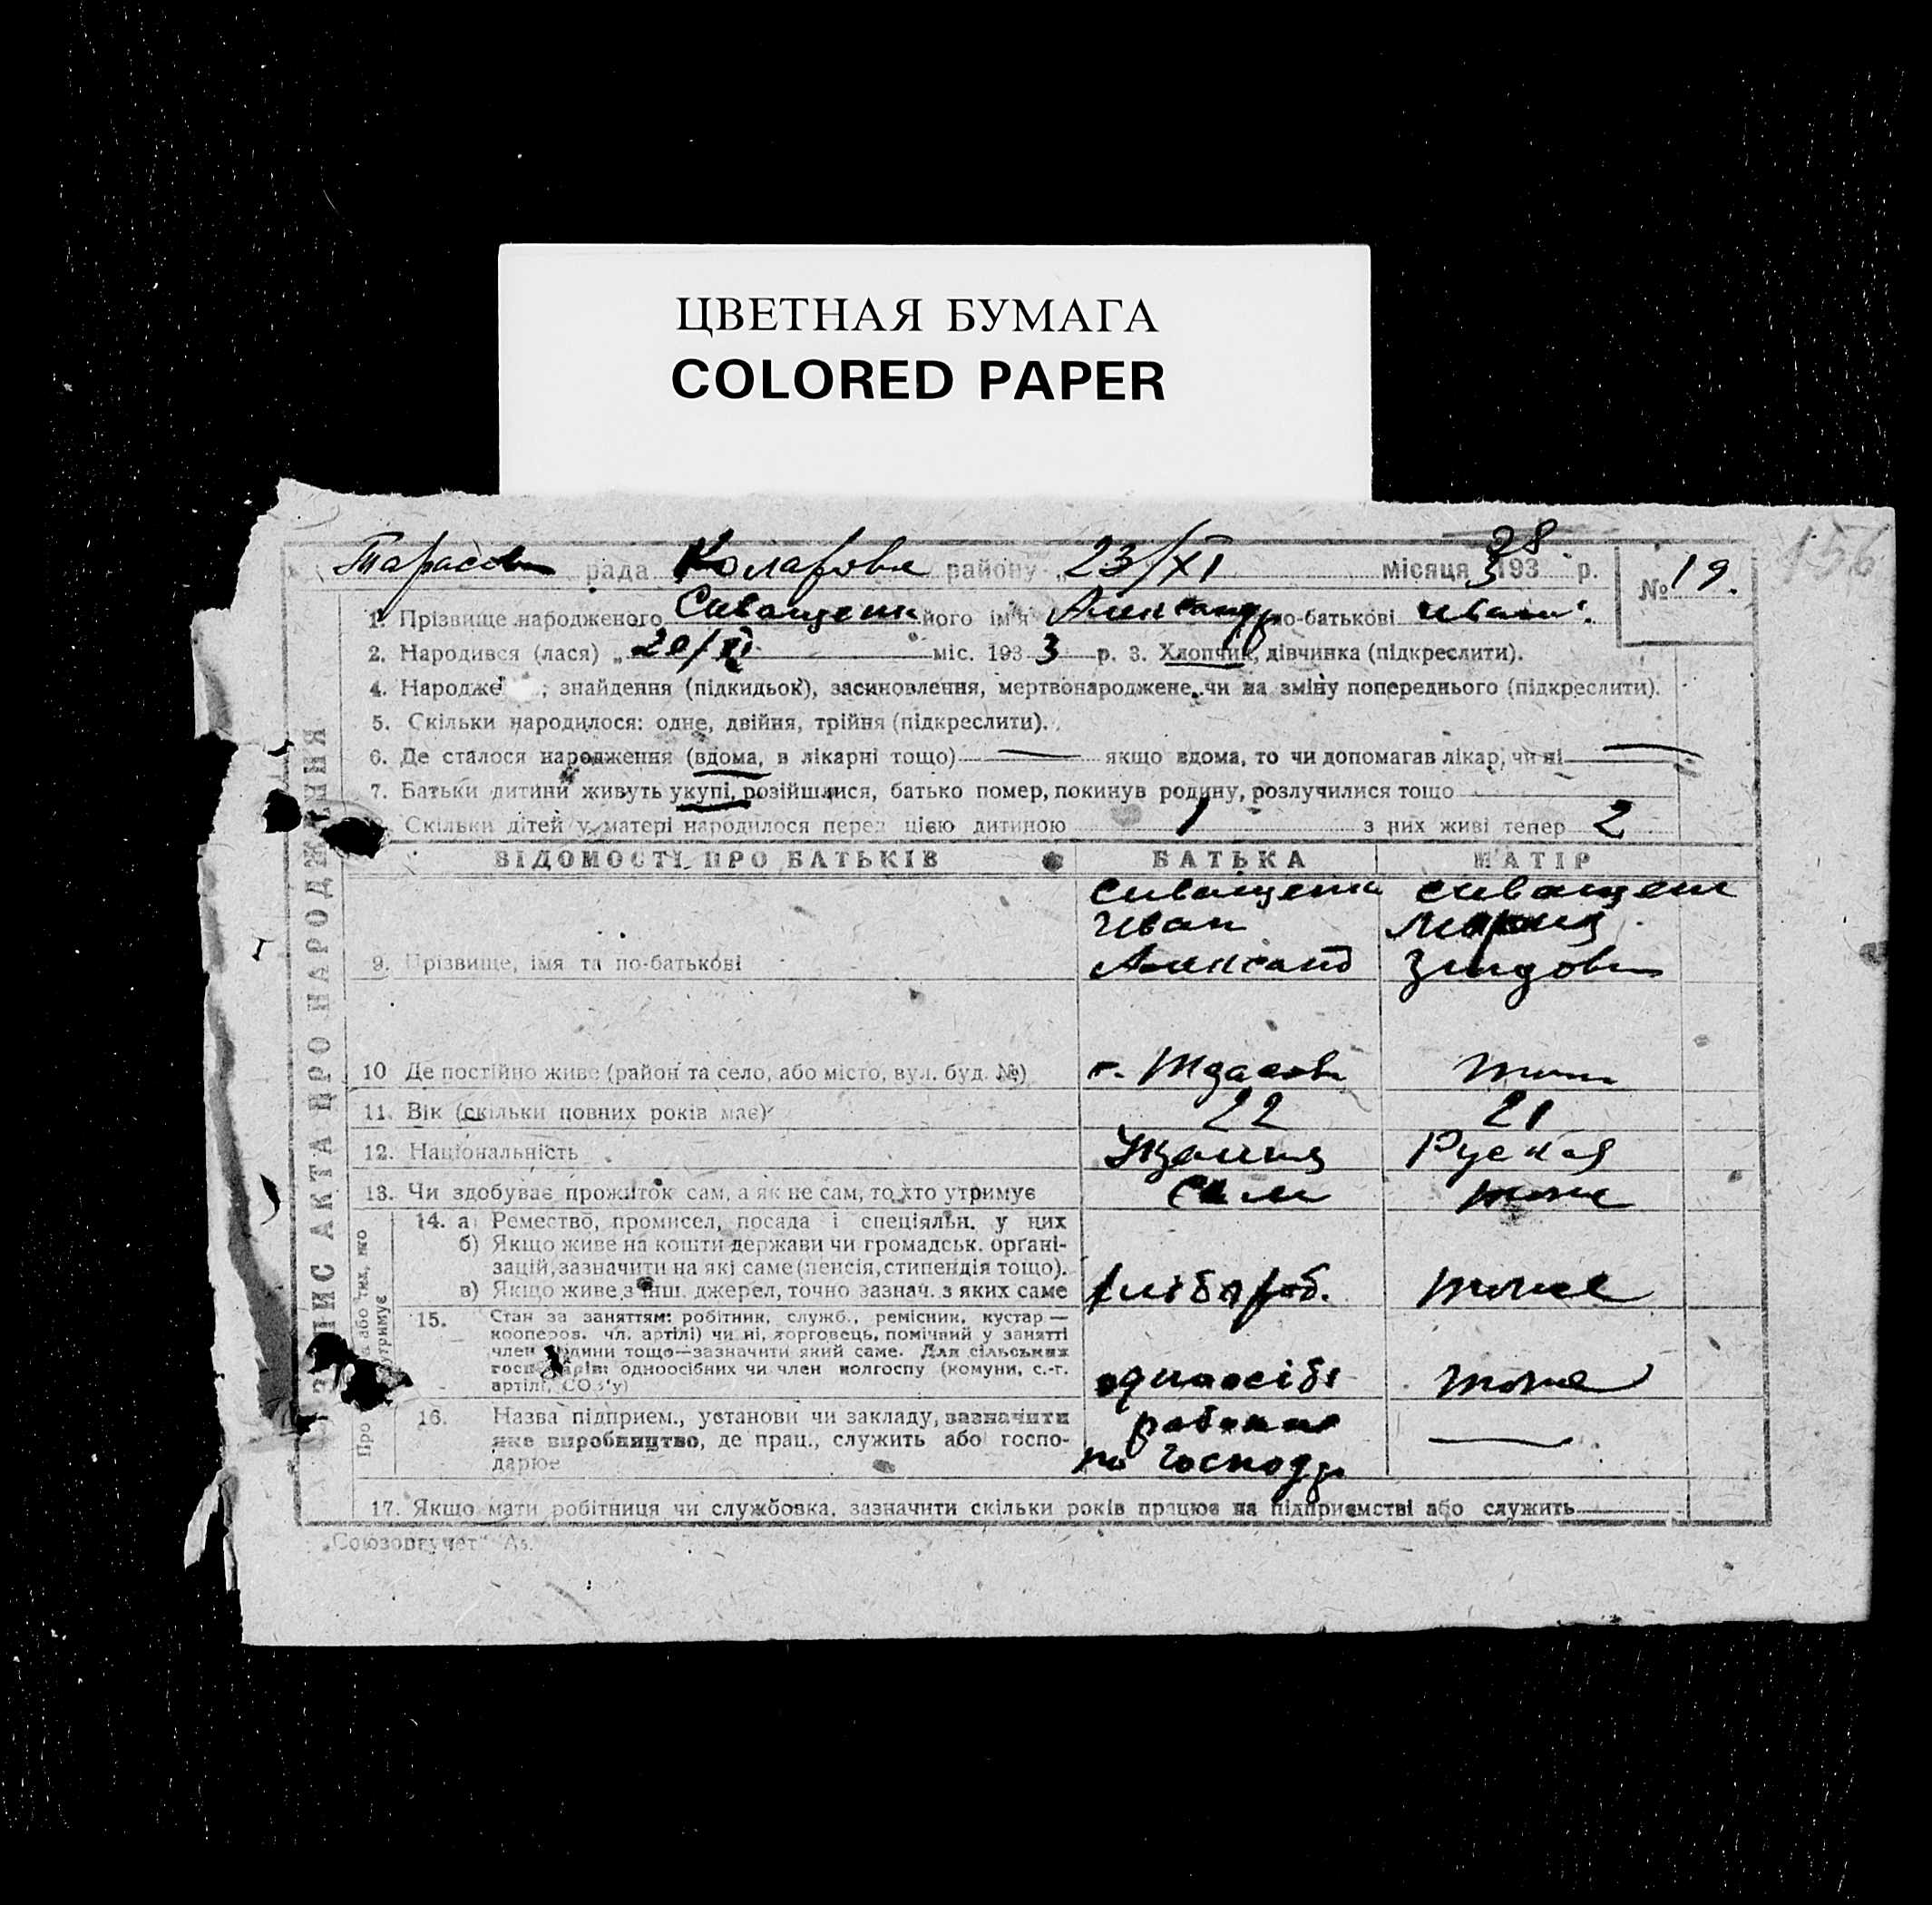 ЦВЕТНАЯ БУМАГА
COLORED PAPER
156
38
рада Коларовск району „ 23/XI місяця 3 193 р. № 19.
1. Прізвище народженого Сиващенк його ім'я Александр по-батькові Иван.
2. Народився (лася) „ 20/XI міс. 193 3 р. 3. Хлопчик, дівчинка (підкреслити).
4. Народже ; знайдення (підкидьок), засиновлення, мертвонароджене, чи на зміну попереднього (підкреслити).
5. Скільки народилося: одне, двійня, трійня (підкреслити).
6. Де сталося народження (вдома, в лікарні тощо) — якщо вдома, то чи допомагав лікар, чи ні —
7. Батьки дитини живуть укупі, розійшлися, батько помер, покинув родину, розлучилися тощо
Скільки дітей у матері народилося перед цією дитиною 1 з них живі тепер 2
ВІДОМОСТІ ПРО БАТЬКІВ БАТЬКА МАТІР
Сиващенк Сиващенк
Иван Мария
9. Прізвище, імя та по-батькові Александ
10 Де постійно живе (район та село, або місто, вул. буд. №)
11. Вік (скільки повних років має) 22 21
12. Національність Руская
13. Чи здобуває прожиток сам, а як не сам, то хто утримує Сам тоже
14. а) Ремество, промисел, посада і спеціяльн. у них
б) Якщо живе на кошти держави чи громадськ. органі-
зацій, зазначити на які саме (пенсія, стипендія тощо).
в) Якщо живе з інш. джерел, точно зазнач. з яких саме хлібороб. тоже
15. Стан за заняттям: робітник, служб., ремісник, кустар—
коопероз. чл. артілі) чи ні, торговець, помічний у занятті
член родини тощо—зазначити який саме. Для сільських
госп дарів: одноосібних чи член колгоспу (комуни, с.-г.
артілі, СОЗ'у) одноосібн тоже
16. Назва підприєм., установи чи закладу, зазначити
яке виробництво, де прац., служить або госпо-
дарює
по господр —
17. Якщо мати робітниця чи службовка, зазначити скільки років працює на підприємстві або служить
ЗАПИС АКТА ПРО НАРОДЖЕННЯ